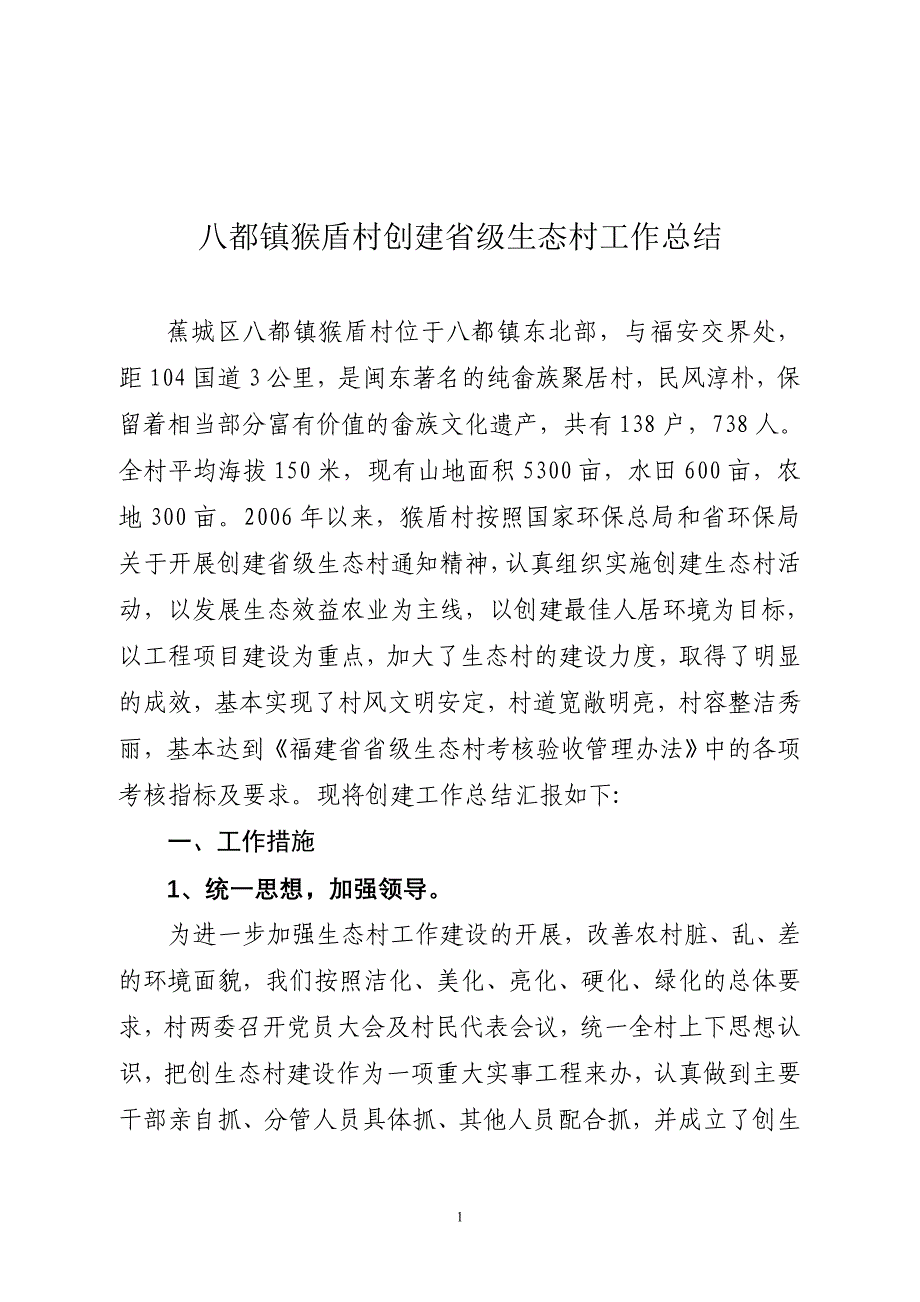 八都镇猴盾村创建省级生态村工作总结
蕉城区八都镇猴盾村位于八都镇东北部，与福安交界处，
距 104 国道 3 公里，是闽东著名的纯畲族聚居村，民风淳朴，保
留着相当部分富有价值的畲族文化遗产，共有 138 户，738 人。
全村平均海拔 150 米，现有山地面积 5300 亩，水田 600 亩，农
地 300 亩。2006 年以来，猴盾村按照国家环保总局和省环保局
关于开展创建省级生态村通知精神，认真组织实施创建生态村活
动，以发展生态效益农业为主线，以创建最佳人居环境为目标，
以工程项目建设为重点，加大了生态村的建设力度，取得了明显
的成效，基本实现了村风文明安定，村道宽敞明亮，村容整洁秀
丽，基本达到《福建省省级生态村考核验收管理办法》中的各项
考核指标及要求。现将创建工作总结汇报如下：
一、工作措施
1、统一思想，加强领导。
为进一步加强生态村工作建设的开展，改善农村脏、乱、差
的环境面貌，我们按照洁化、美化、亮化、硬化、绿化的总体要
求，村两委召开党员大会及村民代表会议，统一全村上下思想认
识，把创生态村建设作为一项重大实事工程来办，认真做到主要
干部亲自抓、分管人员具体抓、其他人员配合抓，并成立了创生
1